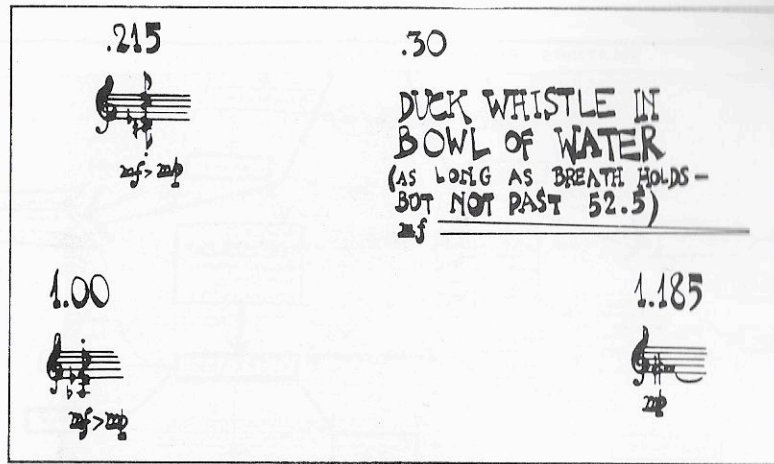 .215
mf > mp
.30
DUCK WHISTLE IN
BOWL OF WATER
(AS LONG AS BREATH HOLDS –
BUT NOT PAST 52.5)
mf
1.00
mf > mp
1.185
mp